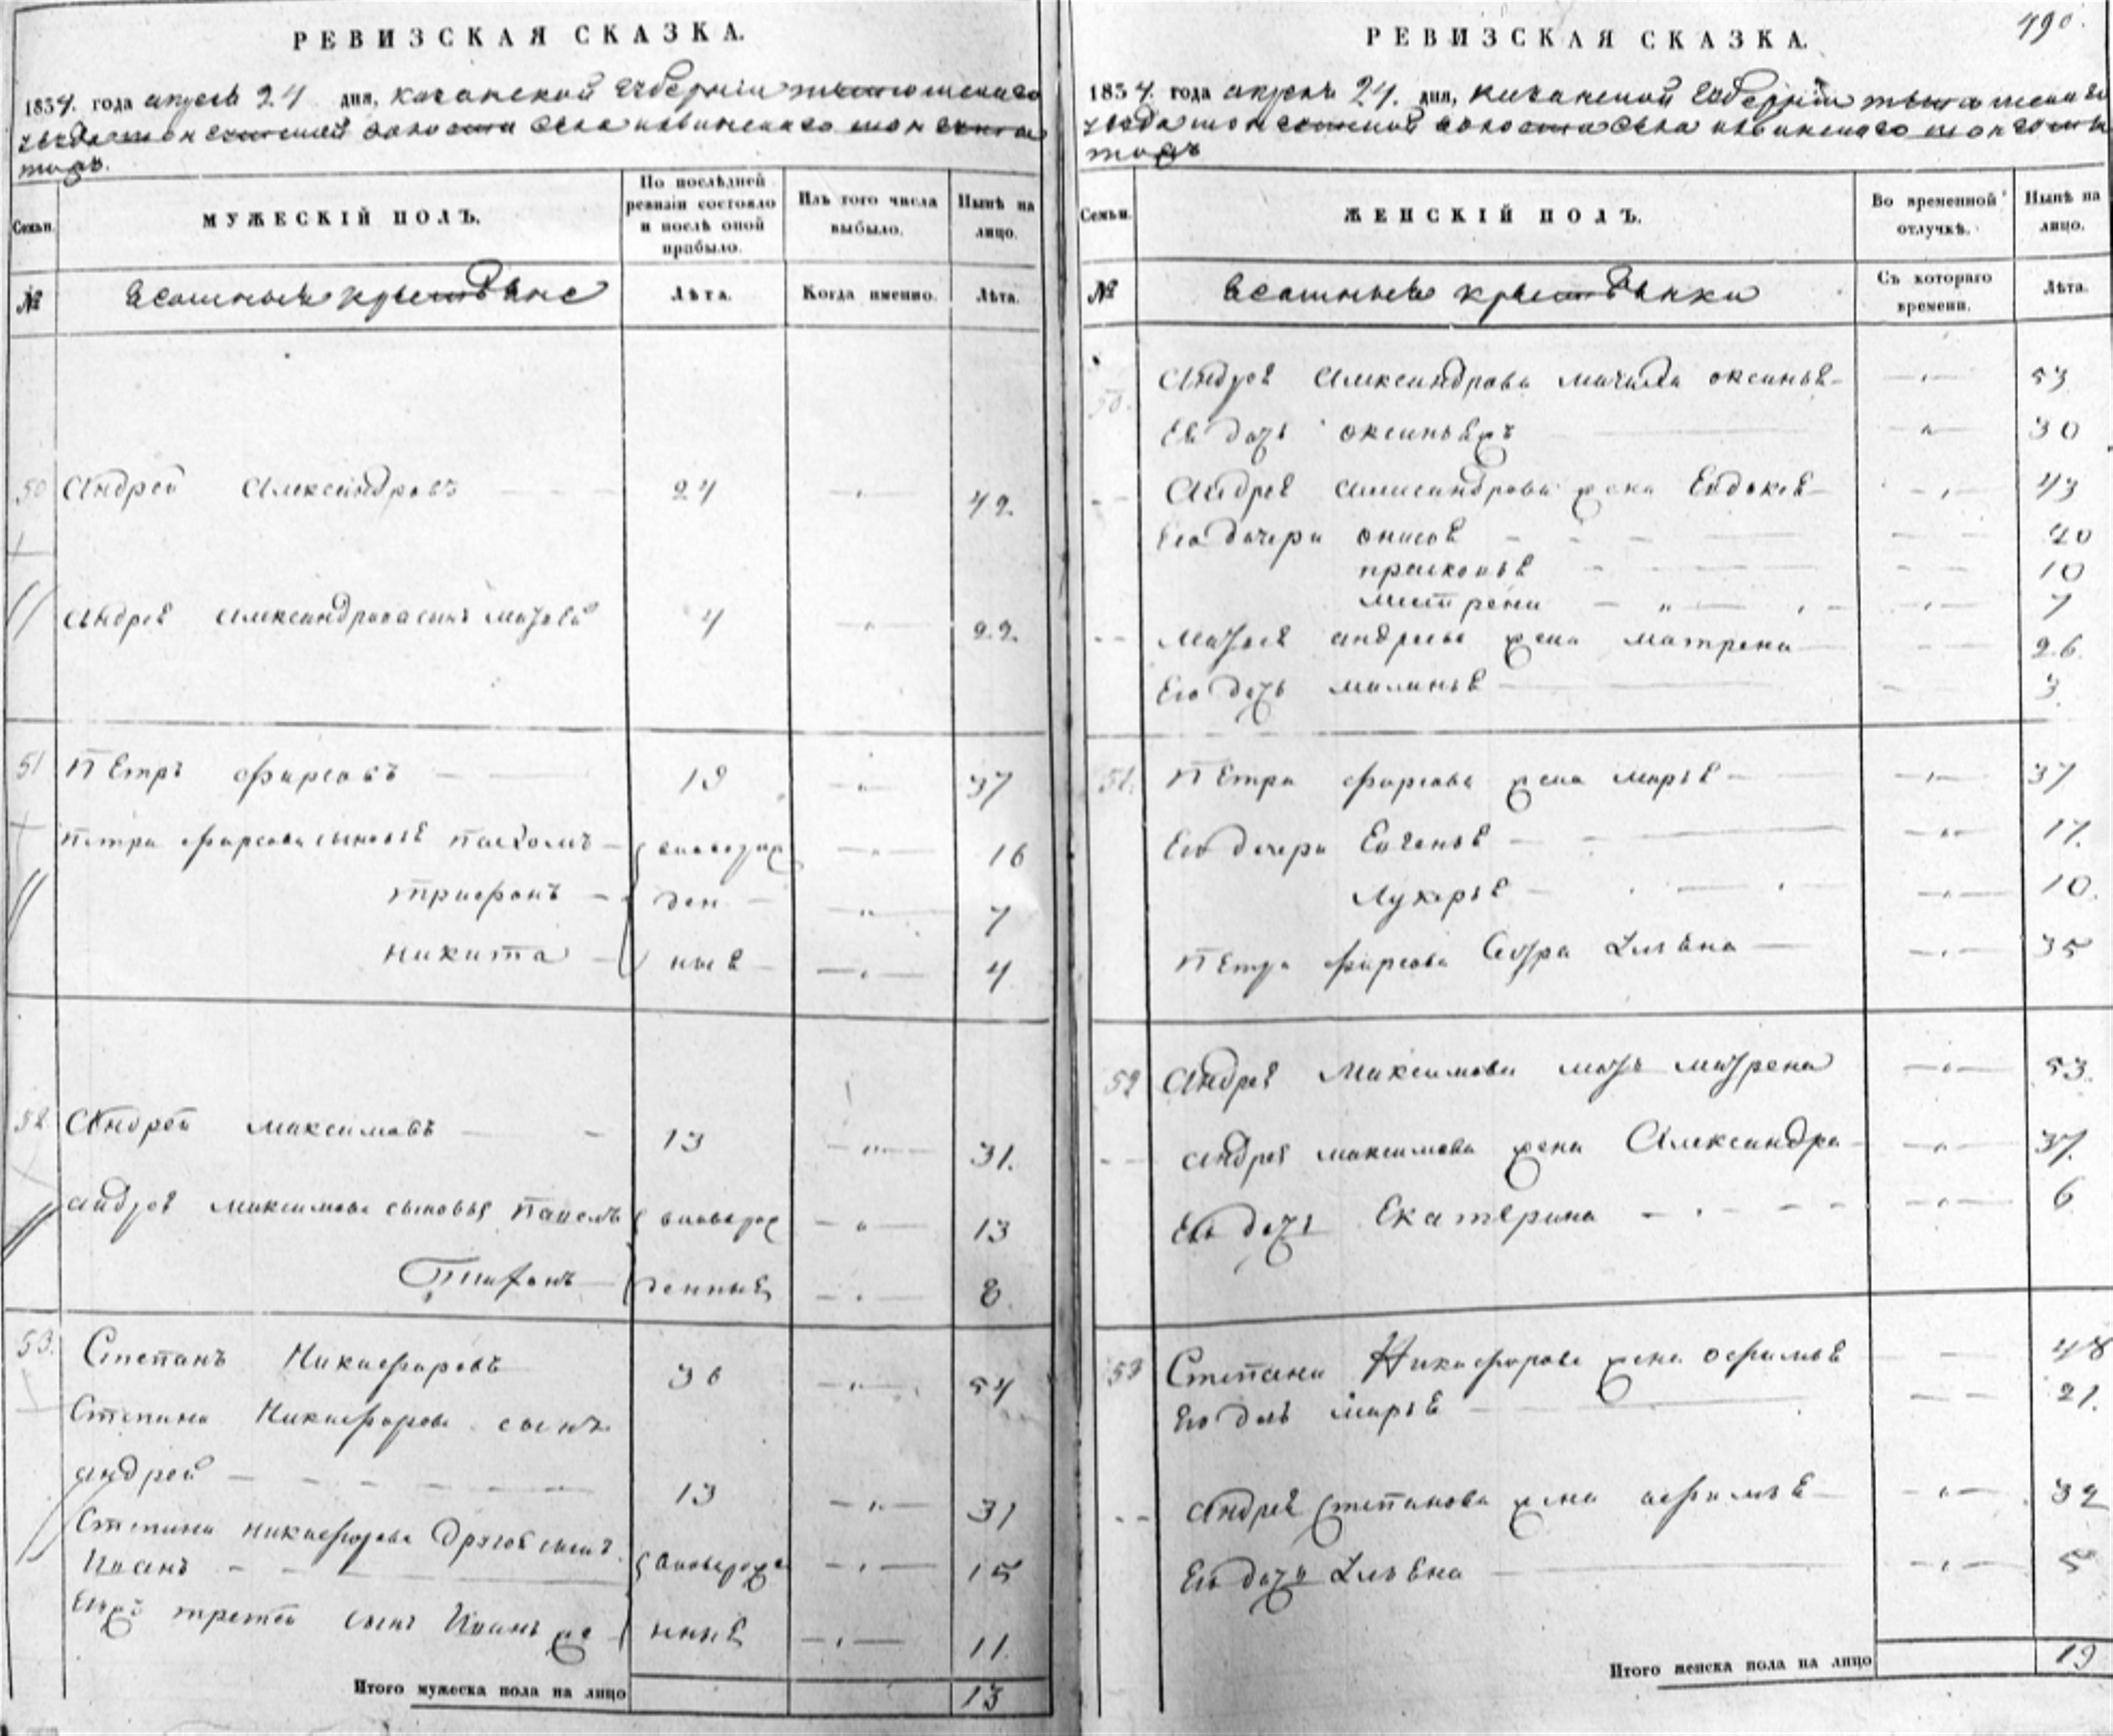 РЕВИЗСКАЯ СКАЗКА.
1834. года апреля 24 дня, казанской губернии
волости села
МУЖЕСКІЙ ПОЛЪ.
Семьи.
По послѣдней ревизіи состояло и послѣ оной прибыло.
Изъ того числа выбыло.
Нынѣ на лицо.
№
ясашные крестьяне
Лѣта.
Когда именно.
Лѣта.
50 Андрей Александровъ 24 42.
Андрея Александрова сынъ Матвей 4 22.
51 Петръ Фирсовъ 19 37
Петра Фирсова сыновья Пахомъ новорож 16
Трифонъ ден 7
Никита ные 4
52 Андрей Максимовъ 13 31.
Андрея Максимова сыновья новорож 13
денные 8
53. Степанъ Никифоровъ 36 54
Степана Никифорова сынъ
Андрей 13 31
Степана Никифорова другой сынъ
Иванъ новорожде 15
третей сынъ Иванъ же нные 11.
Итого мужеска пола на лицо 13
490.
РЕВИЗСКАЯ СКАЗКА.
1834. года апреля 24. дня, казанской губернии
волости села
Семьи.
ЖЕНСКІЙ ПОЛЪ.
Во временной отлучкѣ.
Нынѣ на лицо.
№
ясашные крестьянки
Съ котораго времени.
Лѣта.
50. Андрея Александрова мачиха Оксинья 53
Ея дочь 30
Андрея Александрова жена Евдокея 43
Его дочери 20
Прасковья 10
Матрена 7
Матвея Андреева жена Матрена 26.
Его дочь Маланья 3.
51. Петра Фирсова жена Марья 37
Его дочери Евгенья 17.
Лукерья 10.
Петра Фирсова сестра Ульяна 35
52 Андрея Максимова мать Матрена 53.
Андрея Максимова жена Александра 37.
Его дочь Екатерина 6
53 Степана Никифорова жена Офимья 48
Его дочь Марья 21.
Андрея Степанова жена Афимья 32
Его дочь Ульяна 5
Итого женска пола на лицо 19